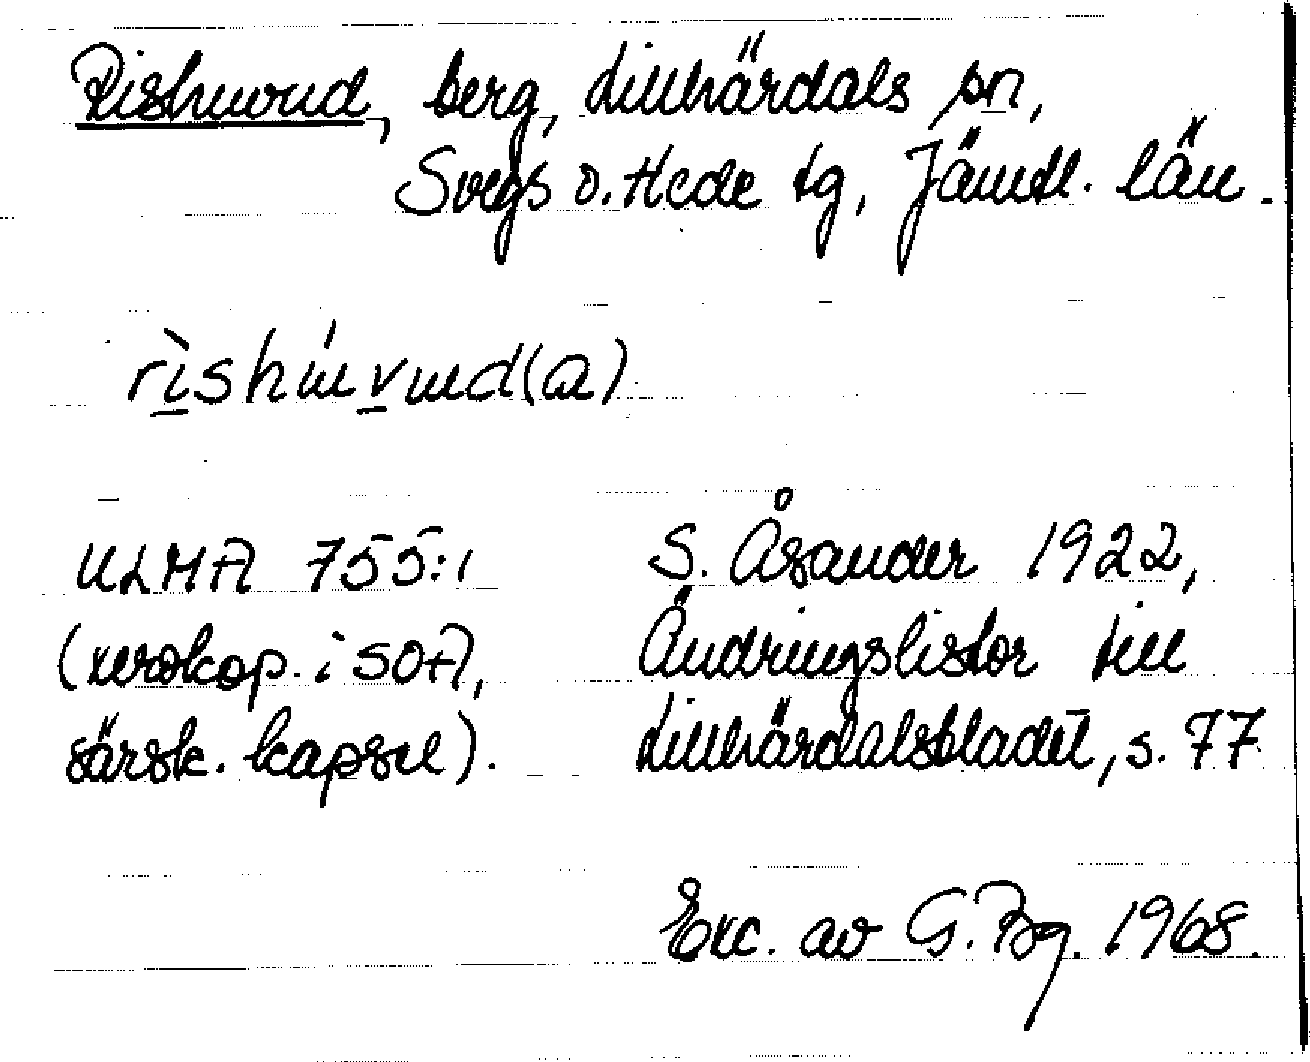 Rishuvud, berg, Lillhärdals sn,
Svegs o. Hede tg, Jämtl. län.
rìshúvud(a)
ULMA 755:1
(xerokop. i SOA,
särsk. kapsel).
S. Åsander 1922,
Ändringslistor till
Lillhärdalsbladet, s. 77
Exc. av G. Bg. 1968.